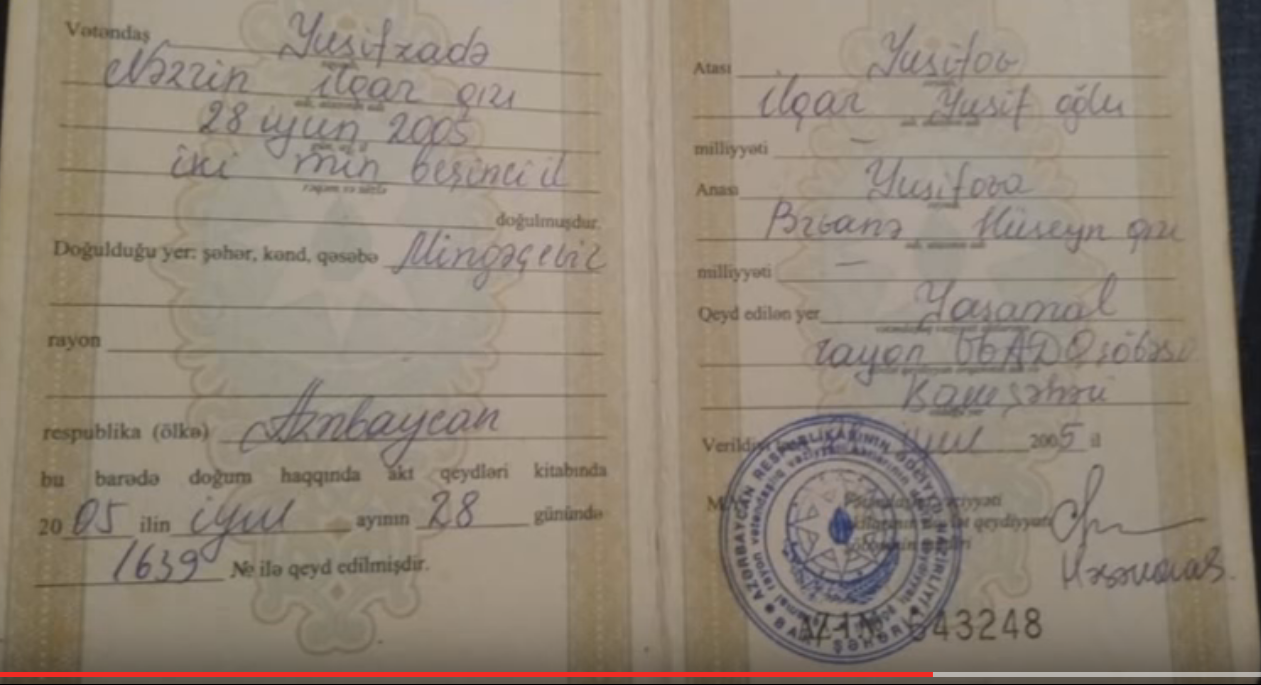 Vətəndaş Yusifzadə
Nəzrin ilqar qızı
adı, atasının adı
28 iyun 2005
gün, ay, il
iki min beşinci il
rəqəm və sözlə
doğulmuşdur.
Doğulduğu yer: şəhər, kənd, qəsəbə Mingəçevir
rayon
respublika (ölkə) Azərbaycan
bu barədə doğum haqqında akt qeydləri kitabında
20 05 ilin iyul ayının 28 günündə
1639 № ilə qeyd edilmişdir.
Atası Yusifov
ilqar Yusif oğlu
adı, atasının adı
milliyyəti —
Anası Yusifova
Hüseyn qızı
adı, atasının adı
milliyyəti —
Qeyd edilən yer Yasamal
rayon VVADQ şöbəsi
Bakı şəhəri
iyul 2005 il
AZƏRBAYCAN RESPUBLİKASININ ƏDLİYYƏ NAZİRLİYİ
BAKI ŞƏHƏRİ
643248